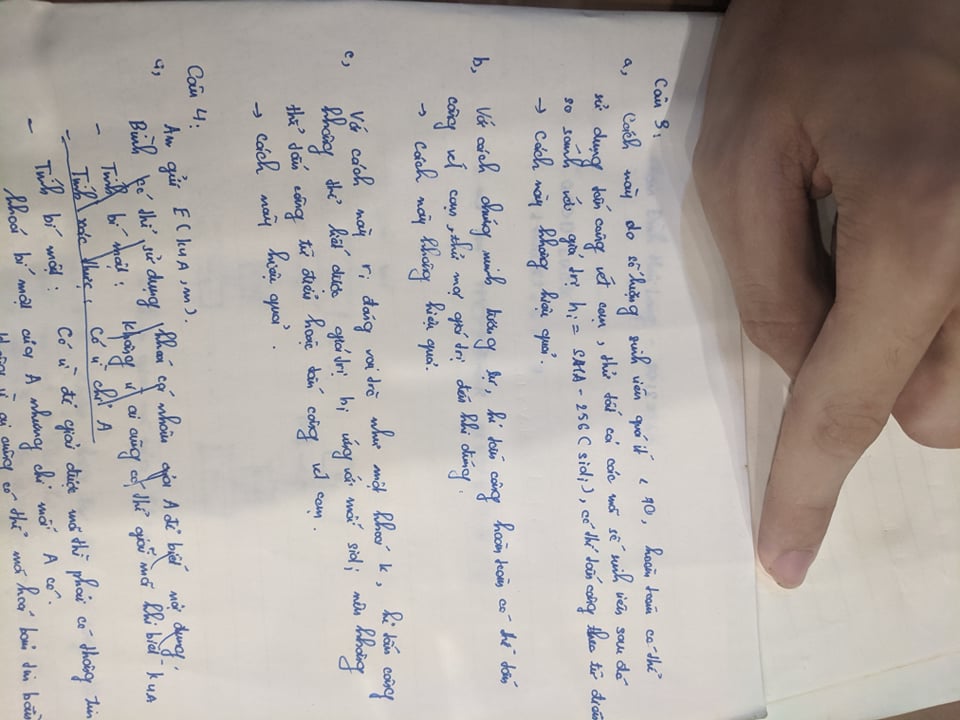 Câu 3:
a, Cách này do số lượng sinh viên quá ít < 10, hoàn toàn có thể
sử dụng tấn công vét cạn, thử tất cả các mã số sinh viên sau đó
so sánh với giá trị hi = SHA-256(sidi), có thể tấn công theo từ điển
→ Cách này không hiệu quả.
b, Với cách chứng minh tương tự, kẻ tấn công hoàn toàn có thể tấn
công vét cạn, thử mọi giá trị đến khi đúng.
→ Cách này không hiệu quả.
c, Với cách này ri đóng vai trò như một khoá k, kẻ tấn công
không thể biết được giá trị hi ứng với mỗi sidi nên không
thể tấn công từ điển hoặc tấn công vét cạn.
→ Cách này hiệu quả.
Câu 4:
a, An gửi E(kUA, m).
Bình có thể sử dụng khoá cá nhân của A để biết nội dung
- Tính bí mật: không vì ai cũng có thể giải mã khi biết kUA
- Tính xác thực: Có vì chỉ A
- Tính bí mật: Có vì để giải được mã thì phải có thông tin
khoá bí mật của A nhưng chỉ mỗi A có.
vì ai cũng có thể mã hoá bản tin bằng